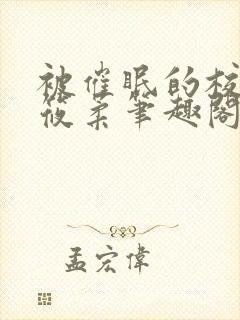 被催眠的校
筱柔笔趣阁
孟宏伟